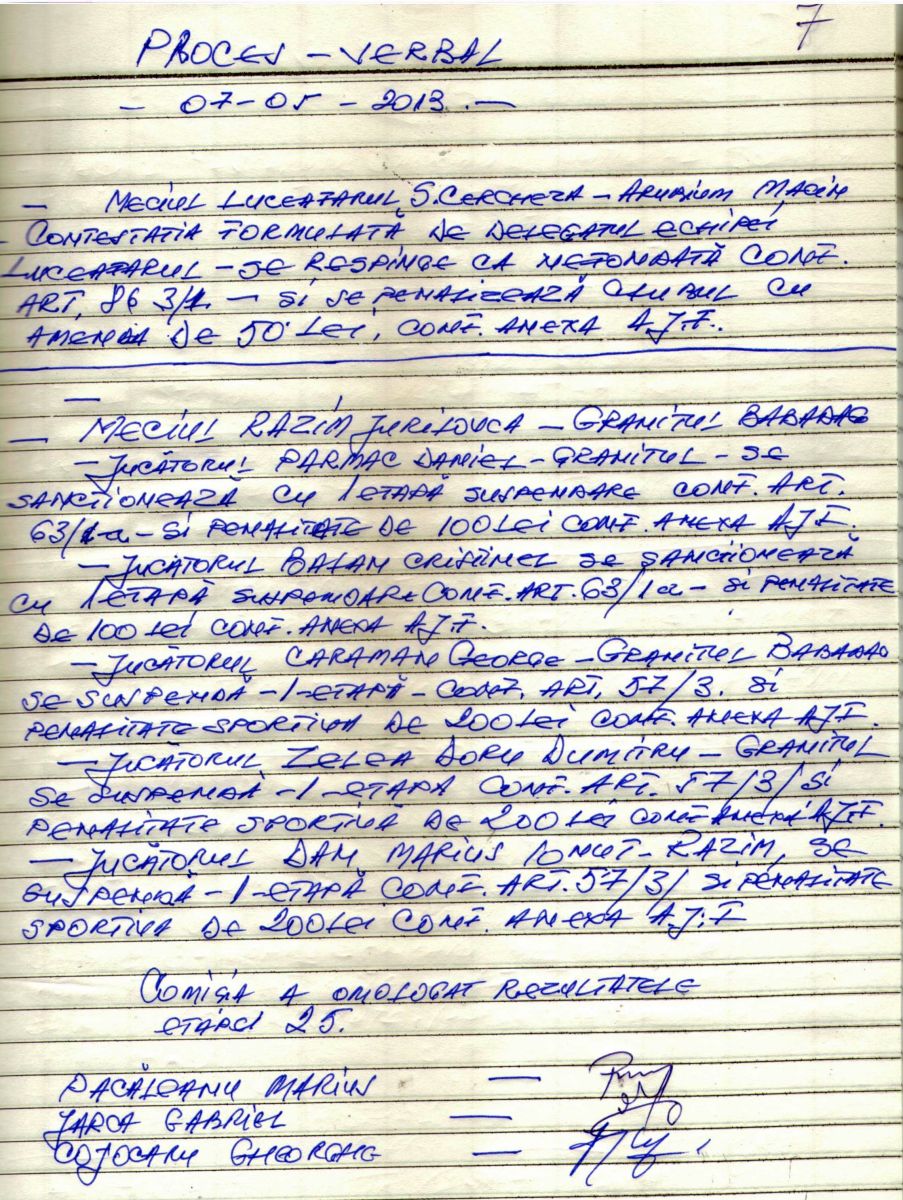 7
PROCES - VERBAL
- 07-05-2013.-
- MECIUL LUCEAFARUL S.CERCHEZA - ARUBIUM MACIN
- CONTESTATIA FORMULATĂ DE DELEGATUL ECHIPEI
LUCEAFARUL - SE RESPINGE CA NEFONDATĂ CONF.
ART. 86 3/1. - SI SE PENALIZEAZĂ CLUBUL CU
AMENDA DE 50 LEI, CONF. ANEXA A.J.F.
-
- MECIUL RAZIM JURILOVCA - GRANITUL BABADAG
- JUCĂTORUL PARMAC DANIEL - GRANITUL - SE
SANCTIONEAZĂ CU 1 ETAPĂ SUSPENDARE CONF. ART.
63/1-a - SI PENALITATE DE 100 LEI CONF. ANEXA AJF.
- JUCATORUL BALAN CRISTINEL SE SANCTIONEAZĂ
CU 1 ETAPĂ SUSPENDARE CONF. ART. 63/1a - SI PENALITATE
DE 100 LEI CONF. ANEXA AJF.
- JUCĂTORUL CARAMAN GEORGE - GRANITUL BABADAG
SE SUSPENDĂ - 1 - ETAPĂ - CONF. ART. 57/3. SI
PENALITATE SPORTIVA DE 200 LEI CONF. ANEXA AJF.
- JUCĂTORUL ZELEA DORU DUMITRU - GRANITUL
SE SUSPENDĂ - 1 - ETAPĂ CONF. ART. 57/3/ SI
PENALITATE SPORTIVĂ DE 200 LEI CONF ANEXA AJF.
- JUCĂTORUL DAN MARIUS IONUT - RAZIM, SE
SUSPENDĂ - 1 - ETAPĂ CONF. ART. 57/3/ SI PENALITATE
SPORTIVA DE 200 LEI CONF. ANEXA A.J.F
COMISIA A OMOLOGAT REZULTATELE
ETAPEI 25.
PACĂLEANU MARIUS -
JARCA GABRIEL -
COJOCARU GHEORGHE -